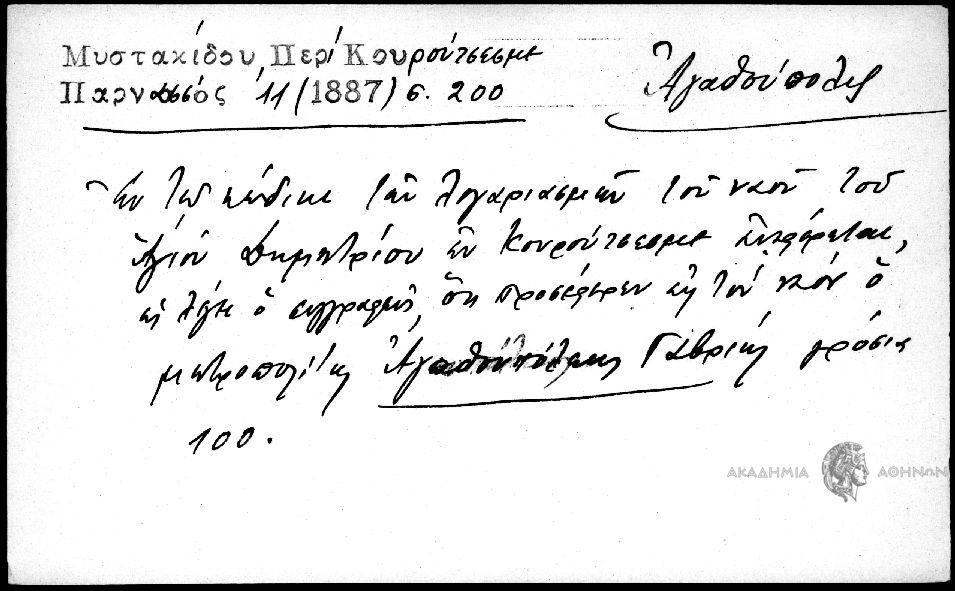 Μυστακίδου Περί Κουρούτσεσμε
Παρνασσός 11 (1887) σ. 200
Ἀγαθούπολις
Ἐν τῷ κώδικι τῶν λογαριασμῶν τοῦ ναοῦ τοῦ
Ἁγίου Δημητρίου ἐν Κουρούτσεσμε ἀναφέρεται,
ὡς λέγει ὁ συγγραφεύς, ὅτι προσέφερεν εἰς τὸν ναόν ὁ
μητροπολίτης Ἀγαθουπόλεως Γαβριήλ γρόσια
100.
ΑΚΑΔΗΜΙΑ ΑΘΗΝΩΝ